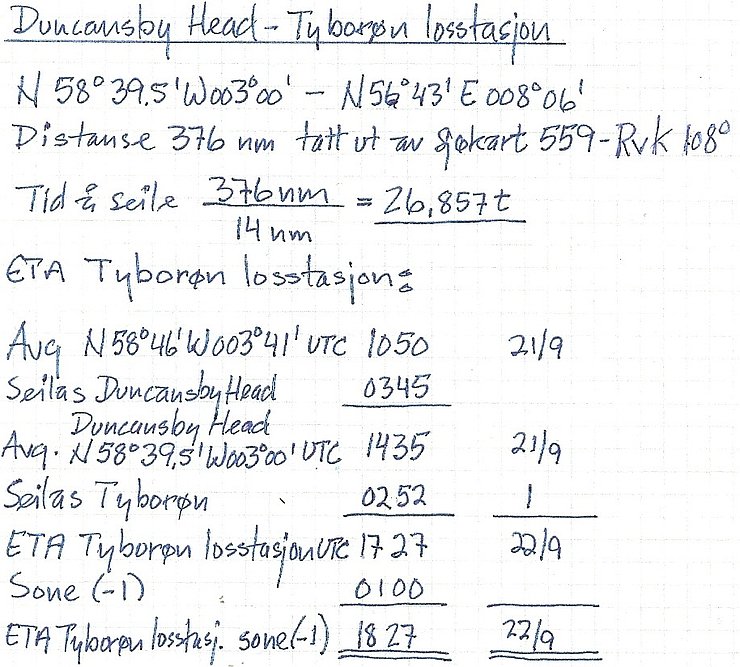 Duncansby Head - Tyborøn losstasjon
N 58° 39.5' W003°00' - N56°43' E 008°06'
Distanse 376 nm tatt ut av sjøkart 559-Rvk 108°
Tid å seile 376 nm / 14 nm = 26,857 t
ETA Tyborøn losstasjon:
Avg N58°46' W003°41' UTC 1050 21/9
Seilas Duncansby Head 0345
Duncansby Head
Avg. N58°39,5' W003°00' UTC 1435 21/9
Seilas Tyborøn 0252 1
ETA Tyborøn losstasjon UTC 1727 22/9
Sone (-1) 0100
ETA Tyborøn losstasj. sone (-1) 1827 22/9